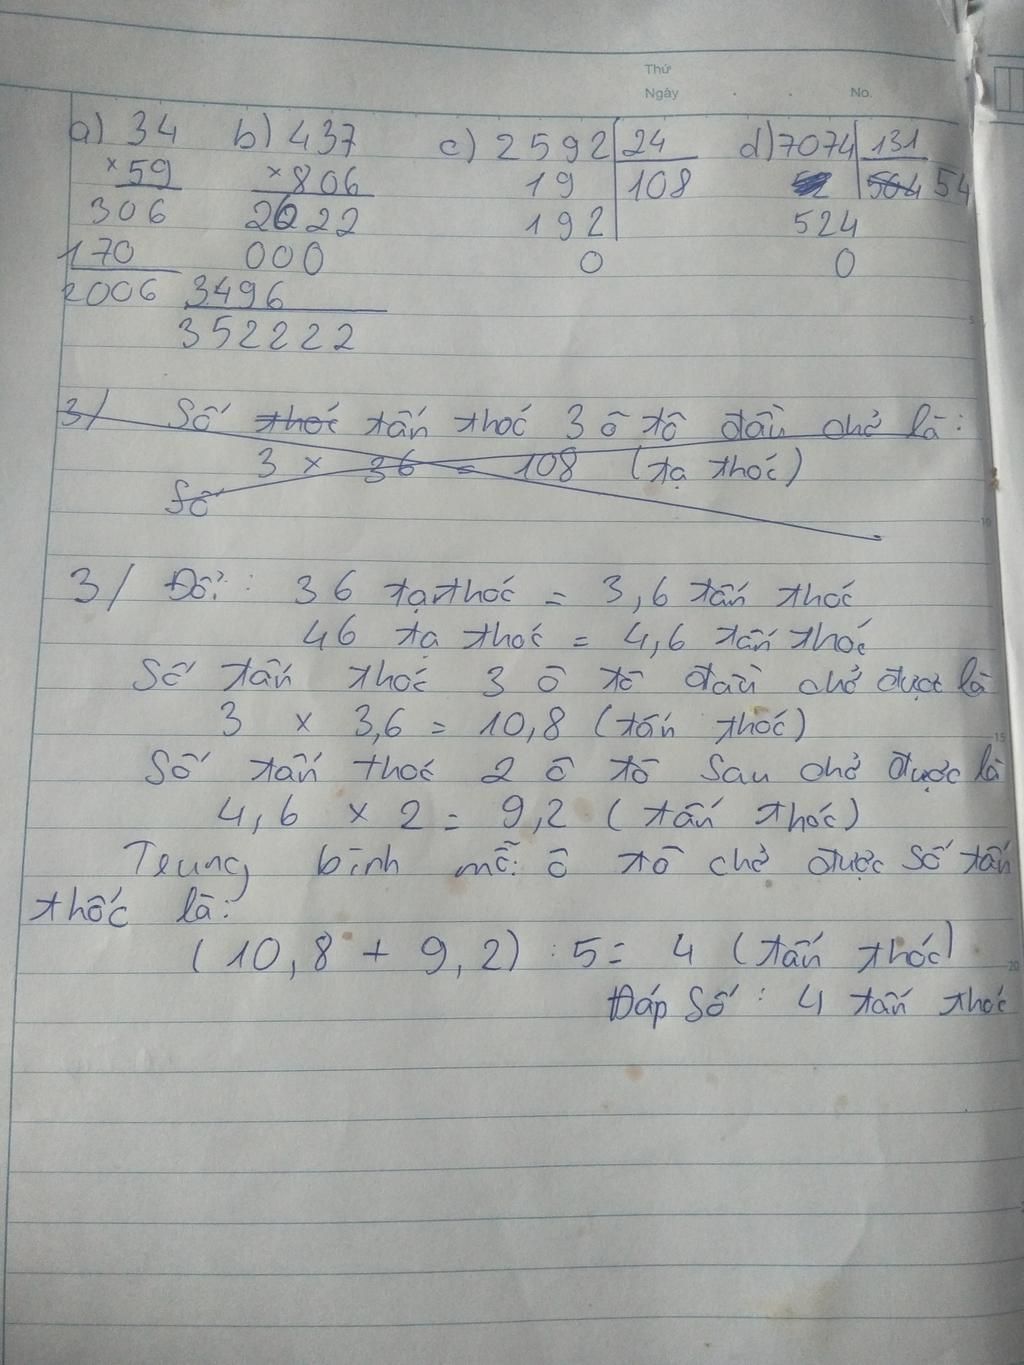 Thứ
Ngày No.
a) 34 b) 437 c) 2592 24 d) 7074 131
×59 ×806 19 108 52 504 54
306 2622 192 524
170 000 0 0
2006 3496
352222
3/ Số thóc tấn thóc 3 ô tô đầu chở là:
3 × 36 = 108 (tạ thóc)
Số
3/ Đổi: 36 tạ thóc = 3,6 tấn thóc
46 tạ thóc = 4,6 tấn thóc
Số tấn thóc 3 ô tô đầu chở được là
3 × 3,6 = 10,8 (tấn thóc)
Số tấn thóc 2 ô tô sau chở được là
4,6 × 2 = 9,2 (tấn thóc)
Trung bình mỗi ô tô chở được số tấn
thóc là:
(10,8 + 9,2) : 5 = 4 (tấn thóc)
Đáp Số : 4 tấn thóc